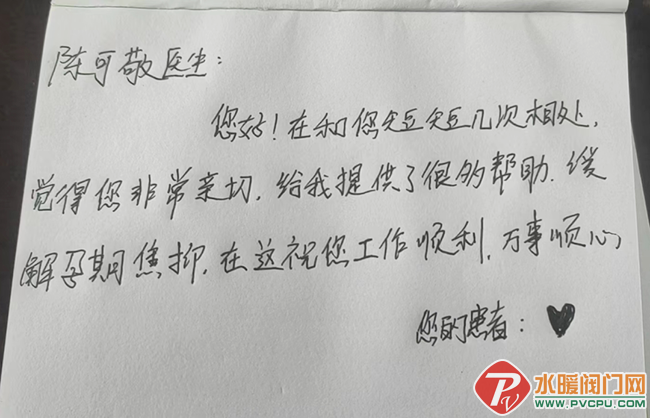 陈可敬医生：
您好！在和您短短几次相处，
觉得您非常亲切，给我提供了很多帮助，缓
解孕期焦抑，在这祝您工作顺利，万事顺心
您的患者：♥
水暖阀门网
WWW.PVCPU.COM